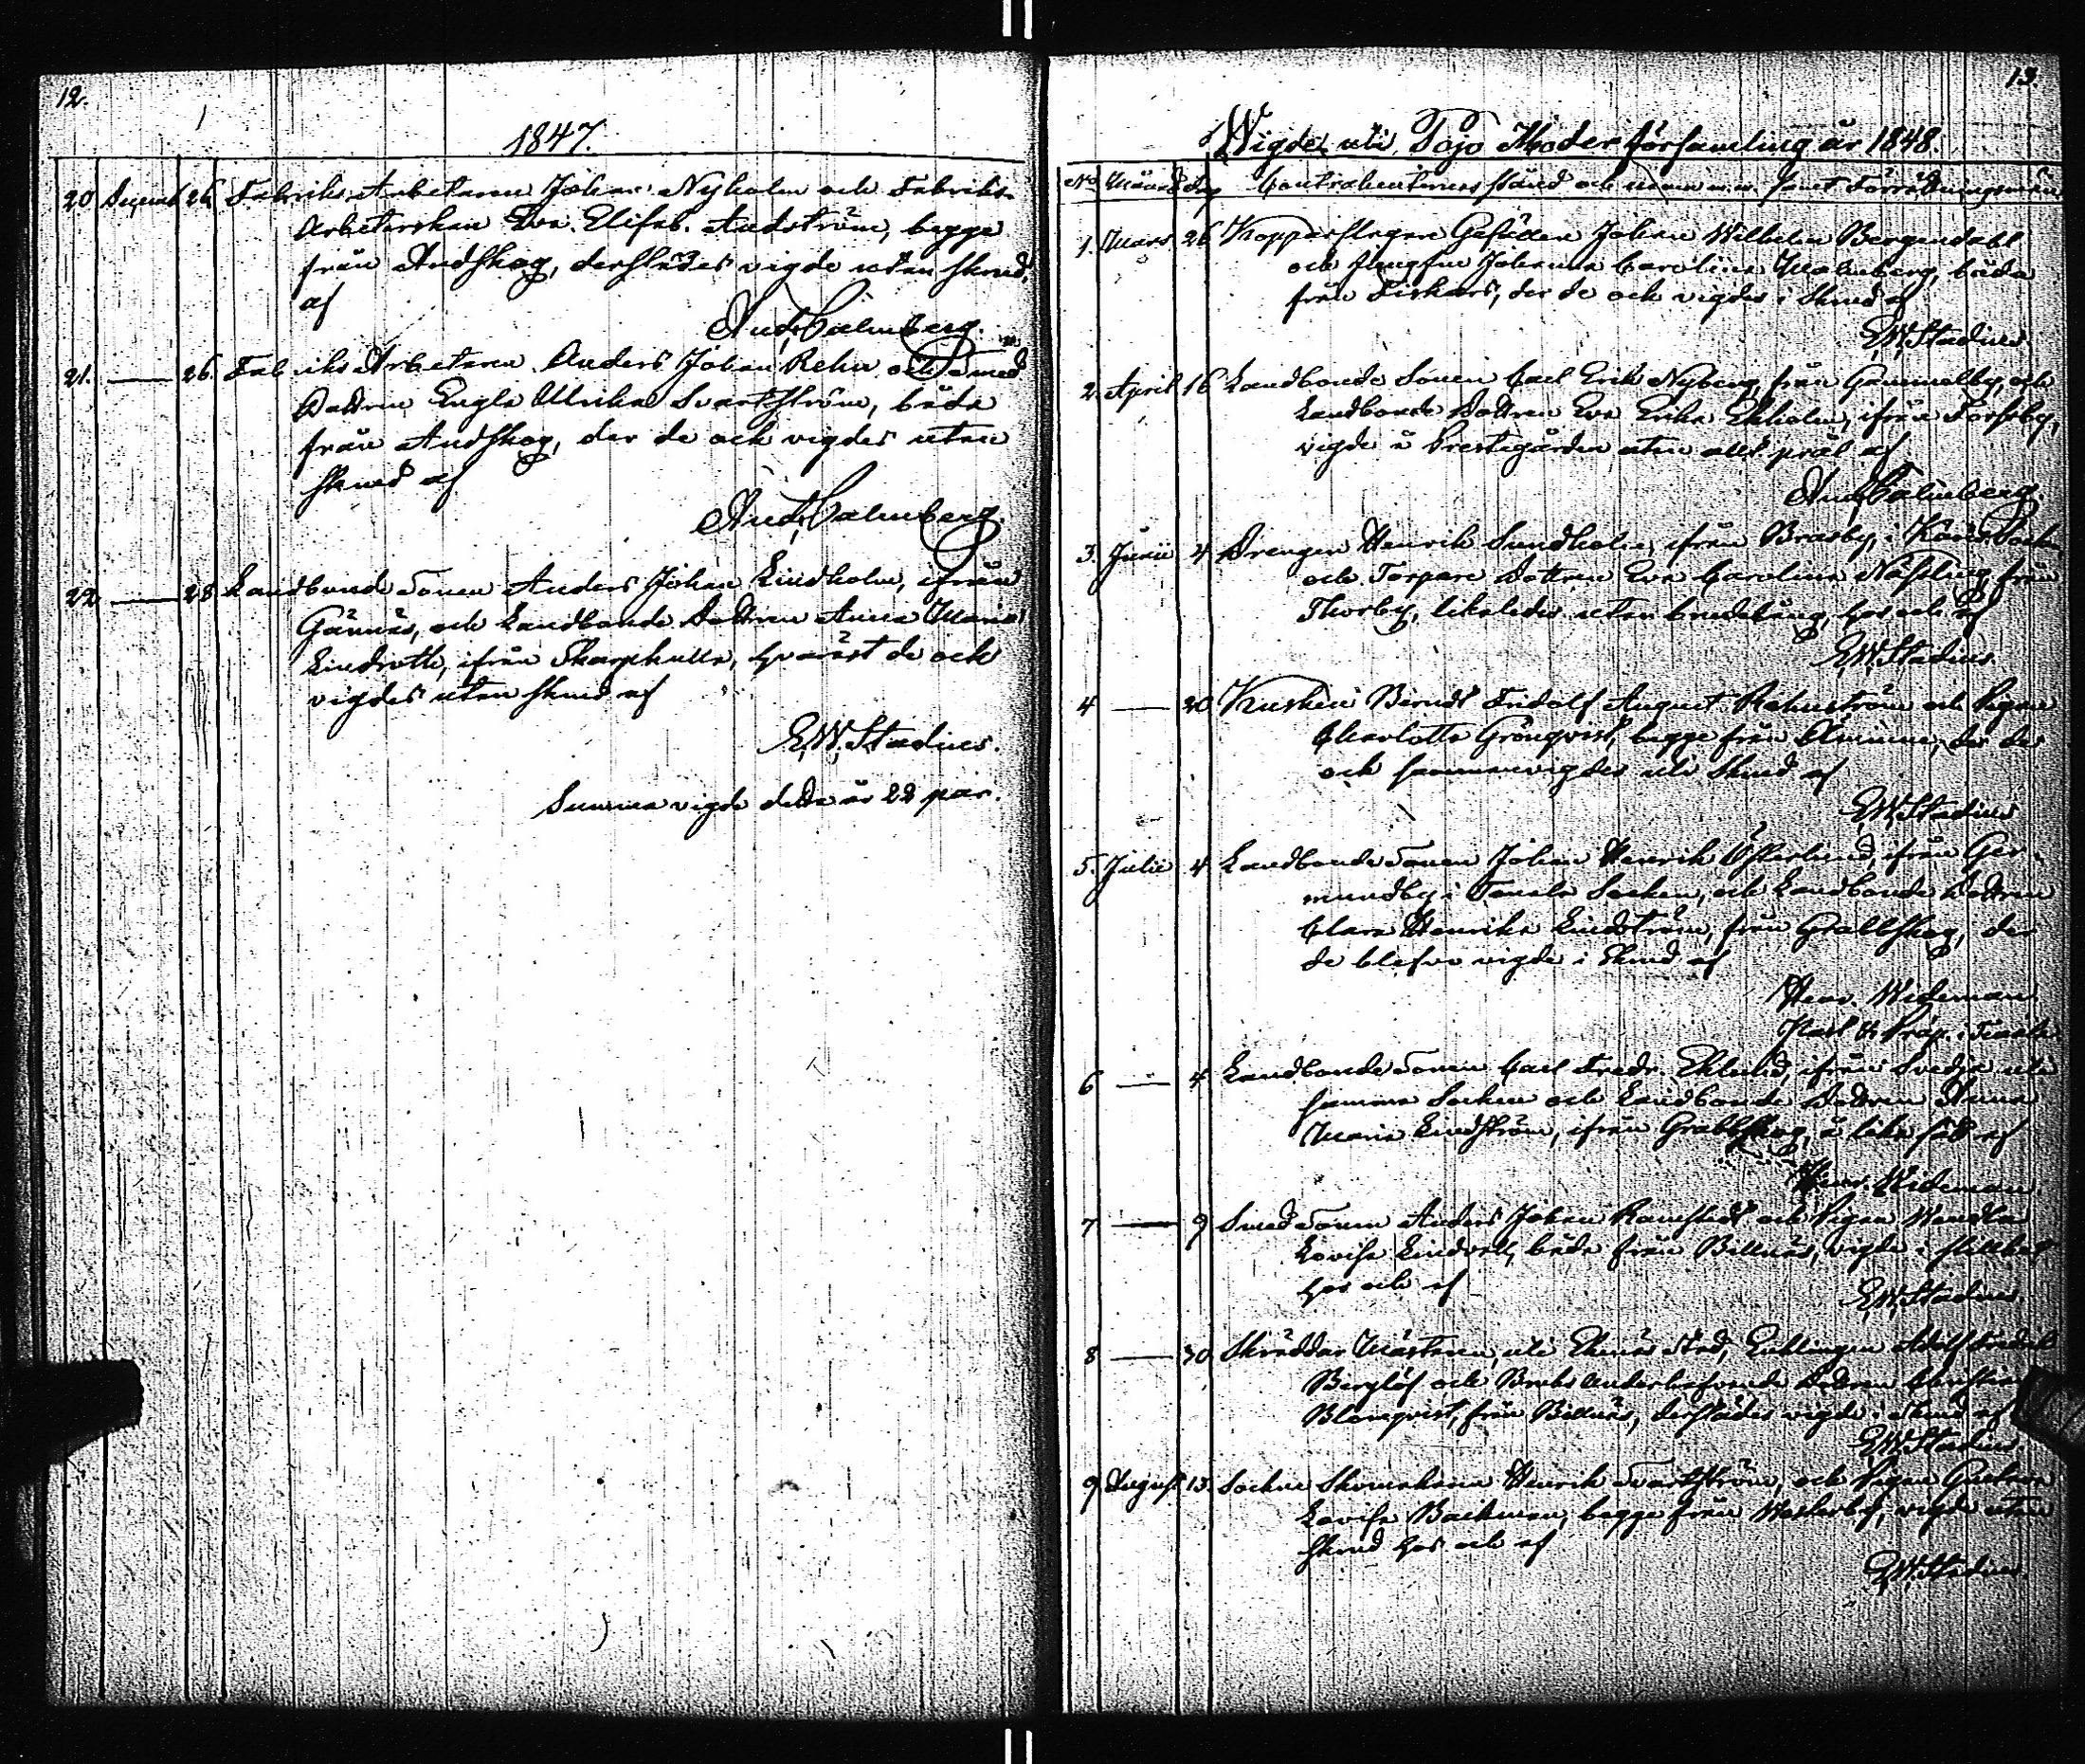 12.
1847.
20 Decemb 26. Fabriks Arbetaren Johan Nyholm och Fabriks-
Arbeterskan Eva Elisab. Andström, begge
från Andskog, derstädes vigde utan skrud,
af
And. Calmberg.
21. — 26. Fabriks Arbetaren Anders Johan Rehn och Smed
Dottren Engla Ulrika Svartström, båda
från Andskog, der de ock vigdes utan
skrud af
And. Calmberg.
22 — 28 Landbonde Sonen Anders Johan Lindholm, ifrån
Gännäs, och Landbonde Dottren Anna Maria
Lindroth, ifrån Skarpkulla, hvarest de ock
vigdes utan skrud af
E.W. Stadius.
Summa vigde detta år 22 par.
13.
Wigde uti Pojo Moder församling år 1848.
No Månad Dag Contrahenternes stånd och namn m.m. samt Förrättningsmän
1. Mars 26 Kopparslagare Gesällen Johan Wilhelm Bergendahl
och Jungfru Johanna Carolina Malmberg, båda
från Fiskars, der de ock vigdes i skrud af
E.W. Stadius
2. April 16 Landbonde Sonen Carl Erik Nyberg, från Gammelby, och
Landbonde Dottren Eva Erika Ekholm, ifrån Forsby,
vigde å Prestegården utan allt prål af
And. Calmberg.
3. Junii 4 Drengen Henrik Sundholm, ifrån Brasby, i Karis Socken
och Torpare Dottren Eva Carolina Näsling från
Thorby, likaledes utan brudstång, hos och af
E.W. Stadius.
4 — 20 Kusken Berndt Fridolf August Rehnström och Pigan
Charlotta Grönqvist, begge från Åminne, der de
ock sammanvigdes uti skrud af
E.W. Stadius
5. Julii 4 Landbonde Sonen Johan Henrik Österlund, ifrån Ger-
mundby i Tenala Socken, och Landbonde Dottren
Clara Henrika Lindström, från Grabbskog, der
de blefvo vigde i skrud af
Henr. Wideman
Past. & Präp. i Tenala
6 — 4 Landbonde Sonen Carl Fredr. Eklund, ifrån Svedja uti
samma Socken och Landbonde Dottren Anna
Maria Lindström, ifrån Grabbskog, å lika sätt af
Henr. Wideman.
7 — 9 Smed Sonen Anders Johan Ramstedt och Pigan Wendla
Lovisa Lindvall, båda från Billnäs, vigde i stillhet
hos och af
E.W. Stadius
8 — 30 Skräddar Mästaren, uti Ekenäs Stad, Enklingen Adolf Fredrik
Berglöf och Bruks Dottren
Blomqvist, från Billnäs, derstädes vigde i skrud af
E.W. Stadius.
9. August 13. Socken Skomakaren Henrik Svartström, och Pigan Gustava
Lovisa Backman, begge från Westerby, vigde utan
skrud hos och af
E.W. Stadius